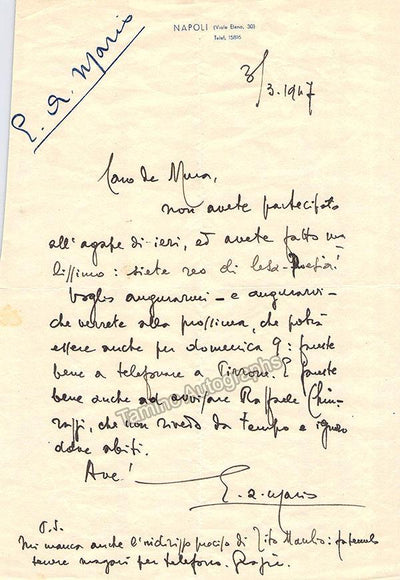 E. A. Mario
NAPOLI (Viale Elena, 30)
Telef. 15816
3/3.1947
Caro de Mura,
non avete partecipato
all'agape di ieri, ed avete fatto ma
lissimo: siete reo di lesa-poesia!
Voglio augurarmi - e augurarvi -
che verrete alla prossima, che potrà
essere anche per domenica 9: fareste
bene a telefonare a Tirrone. E fareste
bene anche ad avvisare Raffaele Chiu-
razzi, che non rivedo da tempo e ignoro
dove abiti.
Tamino Autographs
Ave!
E. A. Mario
P.S.
Mi manca anche l'indirizzo preciso di Tito Manlio: fatemelo
tenere magari per telefono. Grazie.